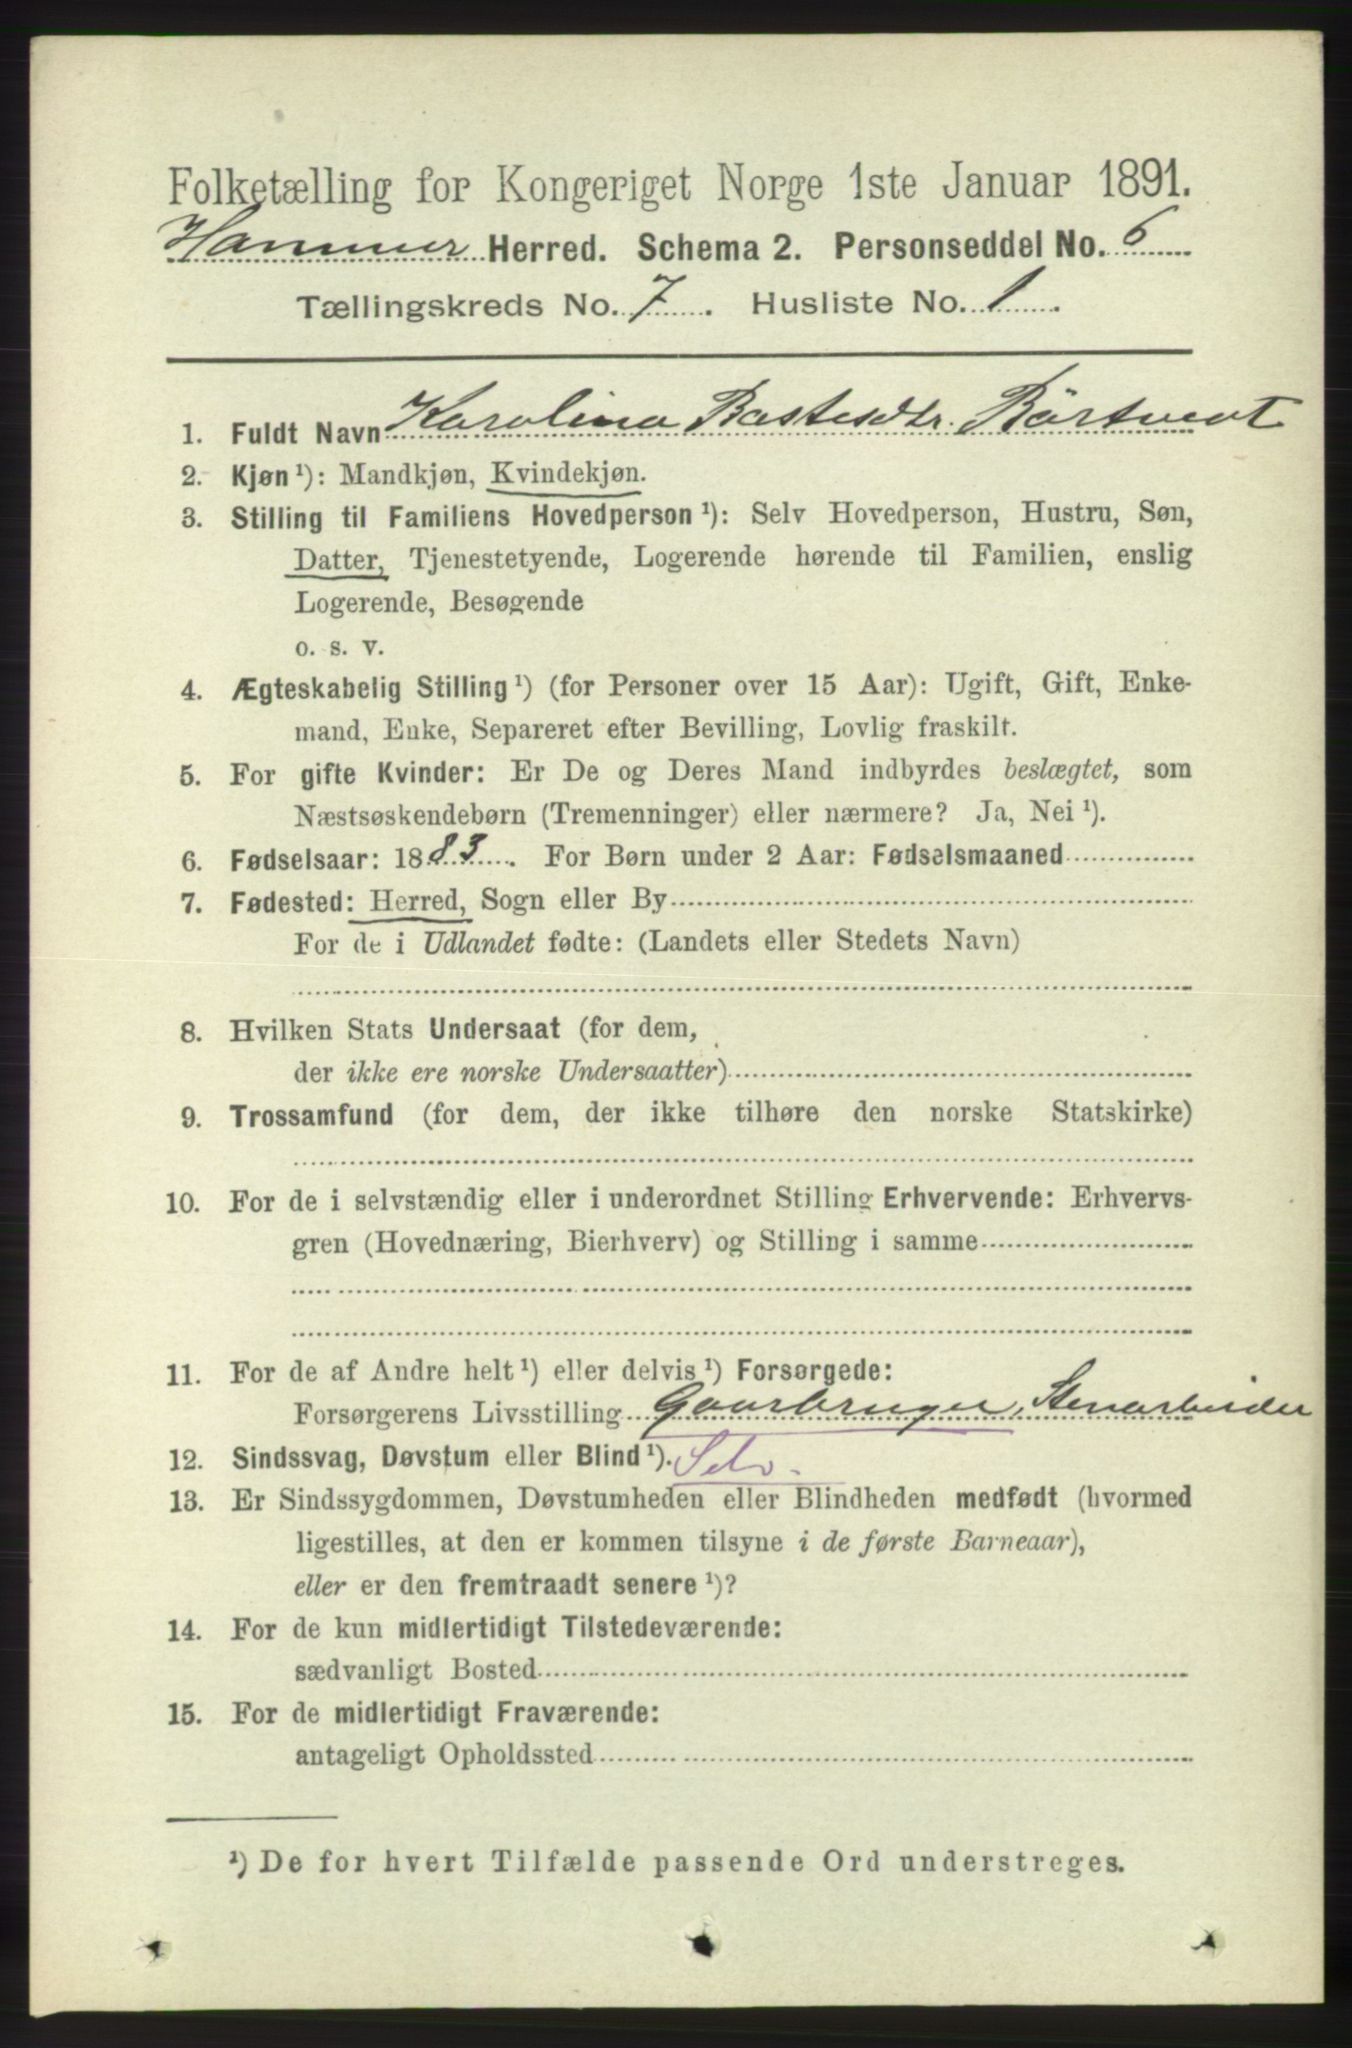 Folketælling for Kongeriget Norge 1ste Januar 1891.
Hammer Herred. Schema 2. Personseddel No. 6
Tællingskreds No. 7. Husliste No. 1.
1. Fuldt Navn Karolina Bastesdtr. Börtveit
2. Kjøn ¹): Mandkjøn, Kvindekjøn.
3. Stilling til Familiens Hovedperson ¹): Selv Hovedperson, Hustru, Søn,
Datter, Tjenestetyende, Logerende hørende til Familien, enslig
Logerende, Besøgende
o. s. v.
4. Ægteskabelig Stilling ¹) (for Personer over 15 Aar): Ugift, Gift, Enke-
mand, Enke, Separeret efter Bevilling, Lovlig fraskilt.
5. For gifte Kvinder: Er De og Deres Mand indbyrdes beslægtet, som
Næstsøskendebørn (Tremenninger) eller nærmere? Ja, Nei ¹).
6. Fødselsaar: 1883. For Børn under 2 Aar: Fødselsmaaned
7. Fødested: Herred, Sogn eller By
For de i Udlandet fødte: (Landets eller Stedets Navn)
8. Hvilken Stats Undersaat (for dem,
der ikke ere norske Undersaatter)
9. Trossamfund (for dem, der ikke tilhøre den norske Statskirke)
10. For de i selvstændig eller i underordnet Stilling Erhvervende: Erhvervs-
gren (Hovednæring, Bierhverv) og Stilling i samme
11. For de af Andre helt ¹) eller delvis ¹) Forsørgede:
Forsørgerens Livsstilling Gaarbruger, Stenarbeider
12. Sindssvag, Døvstum eller Blind ¹). Selv.
13. Er Sindssygdommen, Døvstumheden eller Blindheden medfødt (hvormed
ligestilles, at den er kommen tilsyne i de første Barneaar),
eller er den fremtraadt senere ¹)?
14. For de kun midlertidigt Tilstedeværende:
sædvanligt Bosted
15. For de midlertidigt Fraværende:
antageligt Opholdssted
¹) De for hvert Tilfælde passende Ord understreges.